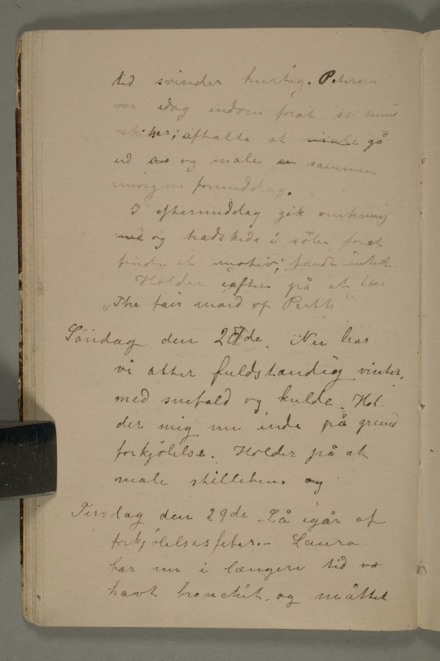 tid svinder hurtig. Petersen
var idag indom forat se mine
skisser; aftalte at gå
ud og male sammen
imorgen formiddag.
I eftermiddag gik omkring
og traskede i sölen forat
finde et motiv; fandt intet
Holder iaften på at læse
„The fair maid of Perth"
Söndag den 27de. Nu har
vi atter fuldstændig vinter,
med snefald og kulde. Hol-
der mig nu inde på grund
forkjölelse. Holder på at
male stilleben. og
Tirsdag den 29de. Lå igår af
forkjölelsesfeber. – Laura
har nu i længere tid
havt bronchit. og måttet